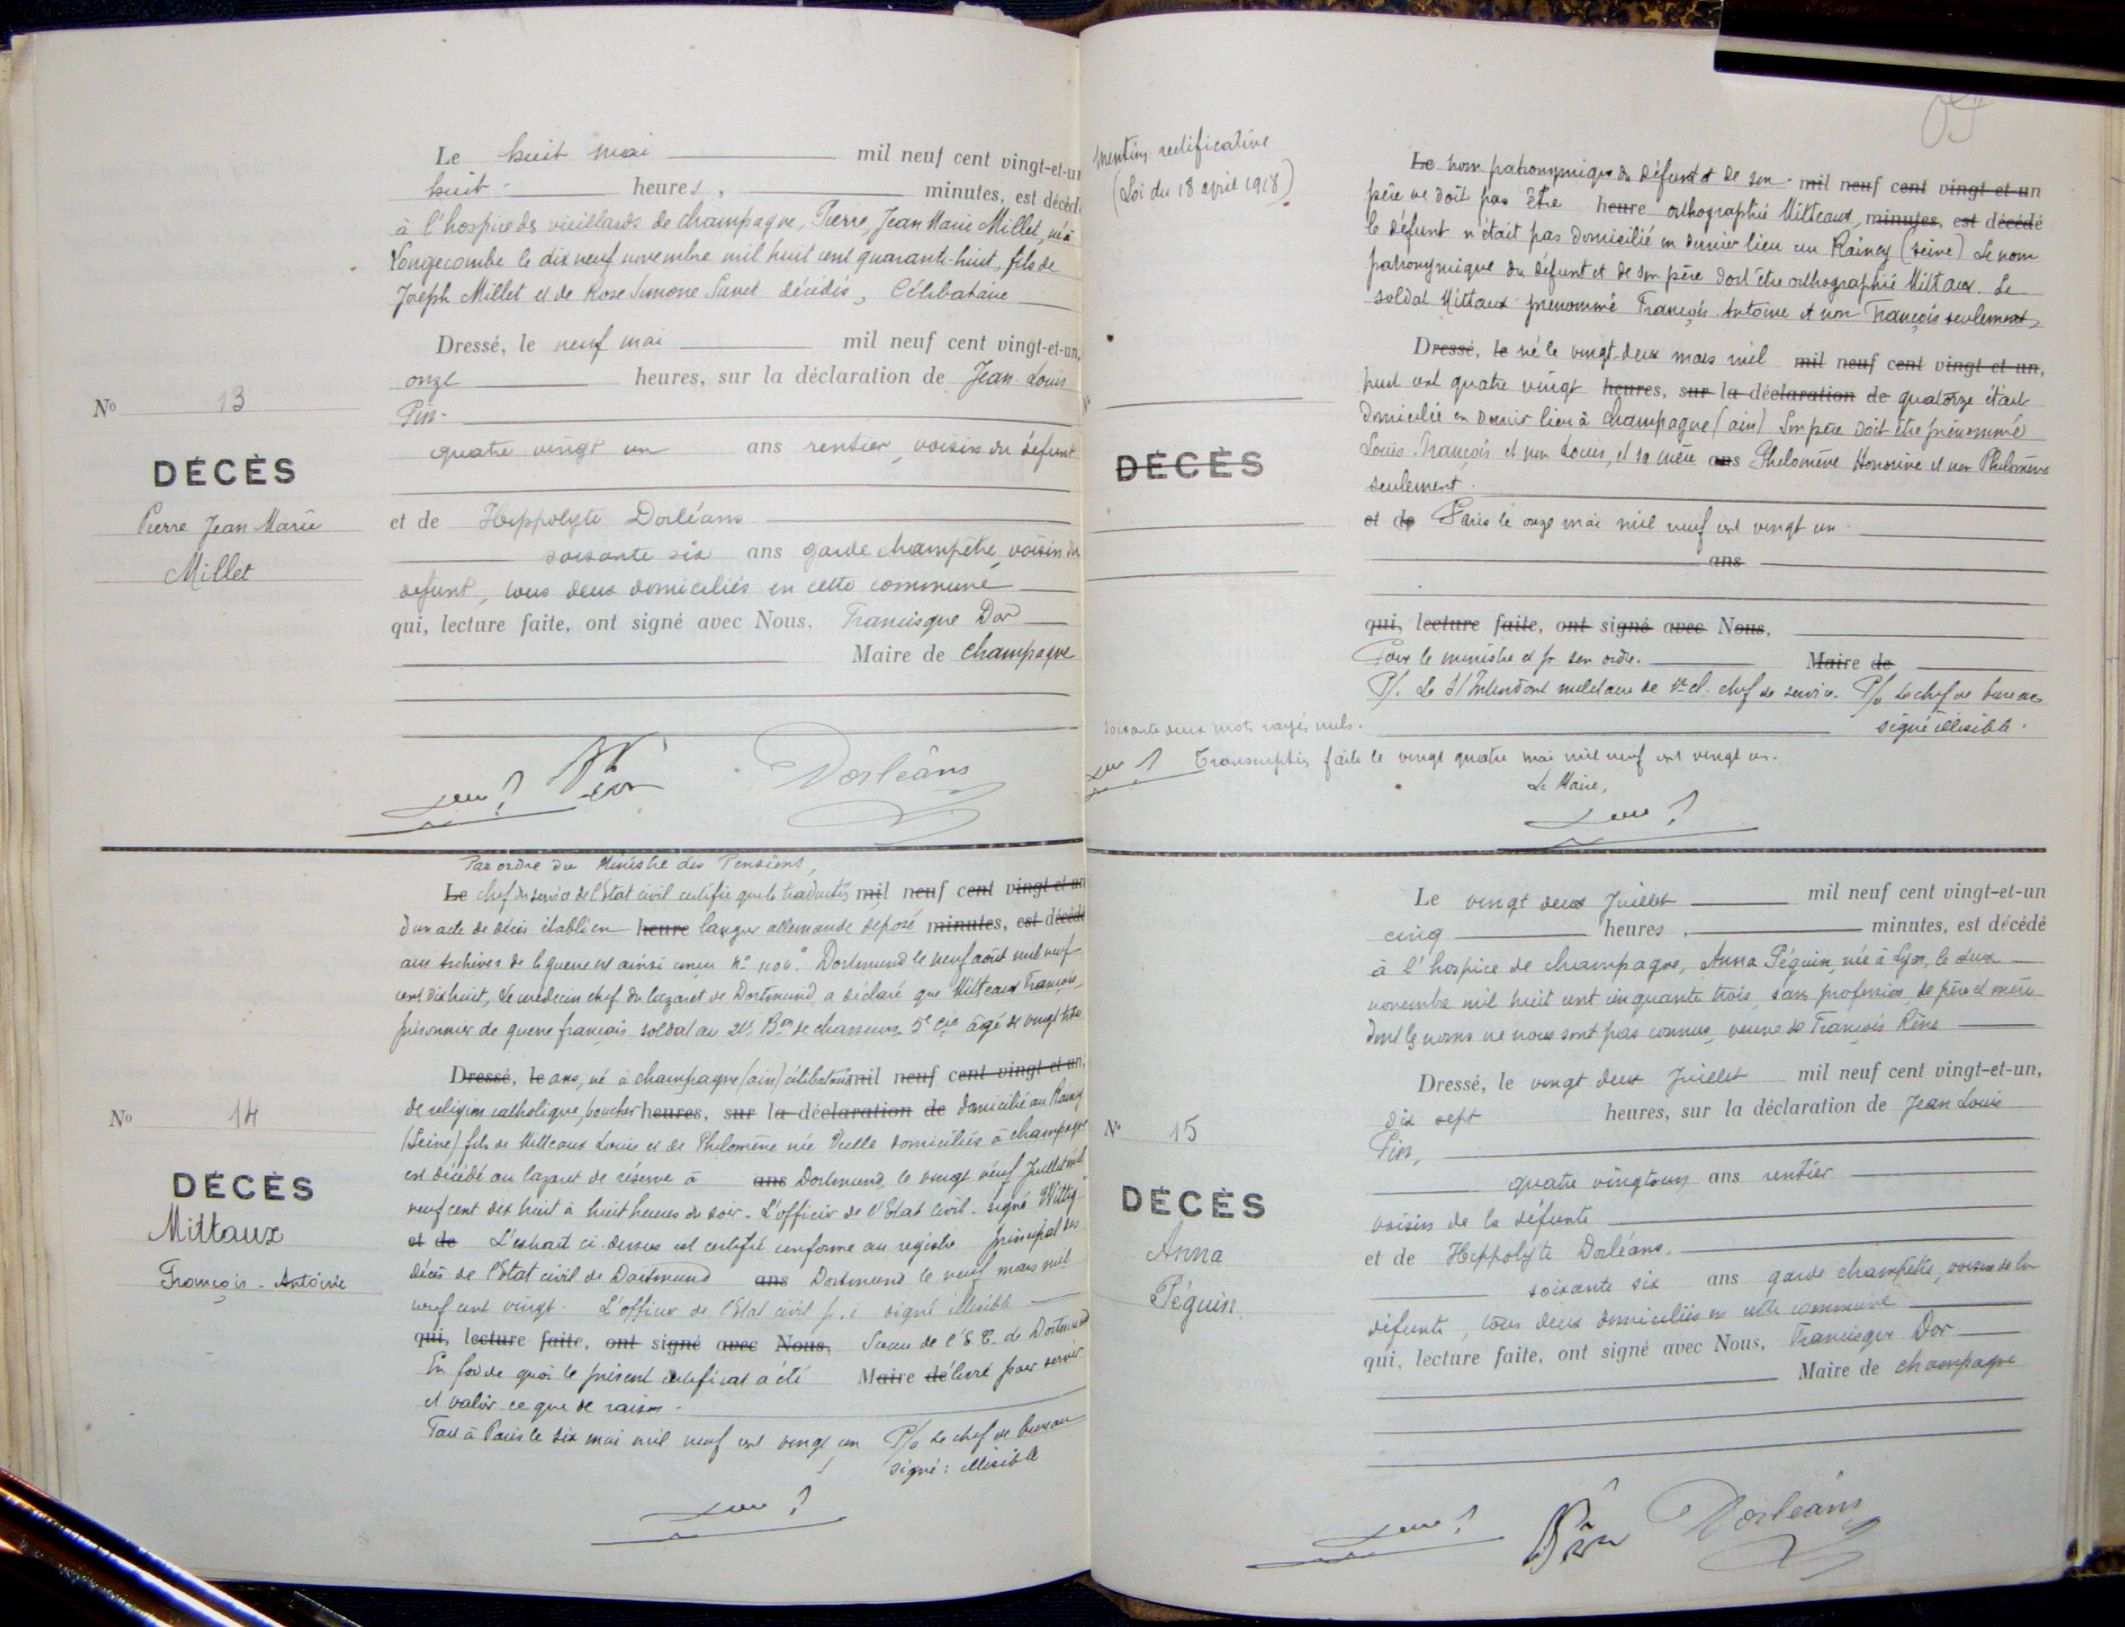 Le huit mai mil neuf cent vingt-et-un
huit heures, minutes, est décédé
à l'hospice de vieillards de Champagne, Pierre, Jean Marie Millet, né à
Longecombe le dix neuf novembre mil huit cent quarante-huit, fils de
Joseph Millet et de Rose Simone décédés, Célibataire
Dressé, le neuf mai mil neuf cent vingt-et-un,
onze heures, sur la déclaration de Jean Louis
quatre vingt un ans rentier, voisin du défunt
et de Hippolyte Dorléans
soixante six ans garde champêtre, voisin du
défunt, tous deux domiciliés en cette commune
qui, lecture faite, ont signé avec Nous, Francisque Dor
Maire de Champagne
No 13
DÉCÈS
Pierre Jean Marie
Millet
Dorléans
Par ordre du Ministre des Pensions,
Le chef du service de l'Etat civil certifie que la traduction mil neuf cent vingt et un
d'un acte de décès établi en heure langue allemande déposé minutes, est décédé
aux archives de la guerre est ainsi conçu No Dortmund le neuf août mil neuf
cent dix huit, Le médecin chef du lazaret de Dortmund a déclaré que Mitteaux François,
prisonnier de guerre français soldat au Bon de chasseurs 5e Cie âgé de vingt trois
Dressé, le ans, né à Champagne (ain) célibataire mil neuf cent vingt et un,
de religion catholique, boucher heures, sur la déclaration de domicilié au Raincy
(Seine) fils de Mitteaux Louis et de Philomène née domiciliés à Champagne
est décédé au lazaret de réserve à ans Dortmund, le vingt neuf Juillet mil
neuf cent dix huit à huit heures du soir. L'officier de l'Etat civil. signé Wittig
et de L'extrait ci-dessus est certifié conforme au registre principal des
décès de l'Etat civil de Dortmund ans Dortmund le neuf mars mil
neuf cent vingt. L'officier de l'Etat civil p.i signé illisible
qui, lecture faite, ont signé avec Nous, Sceau de l'E.C. de Dortmund
En foi de quoi le présent certificat a été Maire délivré pour servir
et valoir ce que de raison.
Fait à Paris le six mai mil neuf cent vingt un P/o Le chef de bureau
signé: illisible
No 14
DÉCÈS
Mittaux
François-Antoine
Mention rectificative
(Loi du 18 avril 1918)
Le nom patronymique du défunt et de son mil neuf cent vingt et un
père ne doit pas être heure orthographié Mitteaux, minutes, est décédé
le défunt n'était pas domicilié en dernier lieu au Raincy (Seine) Le nom
patronymique du défunt et de son père doit être orthographié Mittaux. Le
soldat Mittaux prénommé François Antoine et non François seulement,
Dressé, le né le vingt-deux mars mil mil neuf cent vingt et un,
huit cent quatre vingt heures, sur la déclaration de quatorze était
domicilié en dernier lieu à Champagne (ain) Son père doit être prénommé
Louis-François et non Louis, et sa mère ans Philomène Honorine et non Philomène
seulement.
et de Paris le onze mai mil neuf cent vingt un
ans
qui, lecture faite, ont signé avec Nous,
Pour le ministre et pr son ordre. Maire de
P/. Le S/Intendant militaire de 1re cl. chef de service. P/o Le chef de bureau
signé illisible.
soixante deux mots rayés nuls.
Transcription faite le vingt quatre mai mil neuf cent vingt un.
Le Maire,
DÉCÈS
Le vingt deux Juillet mil neuf cent vingt-et-un
cinq heures, minutes, est décédé
à l'hospice de Champagne, Anna Péguin, née à Lyon, le deux
novembre mil huit cent cinquante trois, sans profession, de père et mère
dont les noms ne nous sont pas connus, veuve de François
Dressé, le vingt deux Juillet mil neuf cent vingt-et-un,
dix sept heures, sur la déclaration de Jean Louis
quatre vingt un ans rentier
voisin de la défunte
et de Hippolyte Dorléans.
soixante six ans garde champêtre, voisin de la
défunte, tous deux domiciliés en cette commune
qui, lecture faite, ont signé avec Nous, Francisque Dor
Maire de Champagne
No 15
DÉCÈS
Anna
Péguin
Dorléans